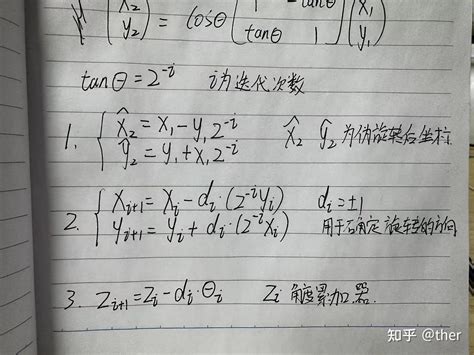 (x₂ y₂) = cosθ (1 -tanθ tanθ 1)(x₁ y₁)
tanθ = 2⁻ⁱ i为迭代次数
1. { x̂₂ = x₁ - y₁2⁻ⁱ
ŷ₂ = y₁ + x₁2⁻ⁱ x̂₂ ŷ₂ 为伪旋转后坐标.
2. { xᵢ₊₁ = xᵢ - dᵢ·(2⁻ⁱyᵢ) dᵢ = ±1
yᵢ₊₁ = yᵢ + dᵢ·(2⁻ⁱxᵢ) 用于确定旋转的方向
3. zᵢ₊₁ = zᵢ - dᵢ·θᵢ zᵢ 角度累加器.
知乎 @ther